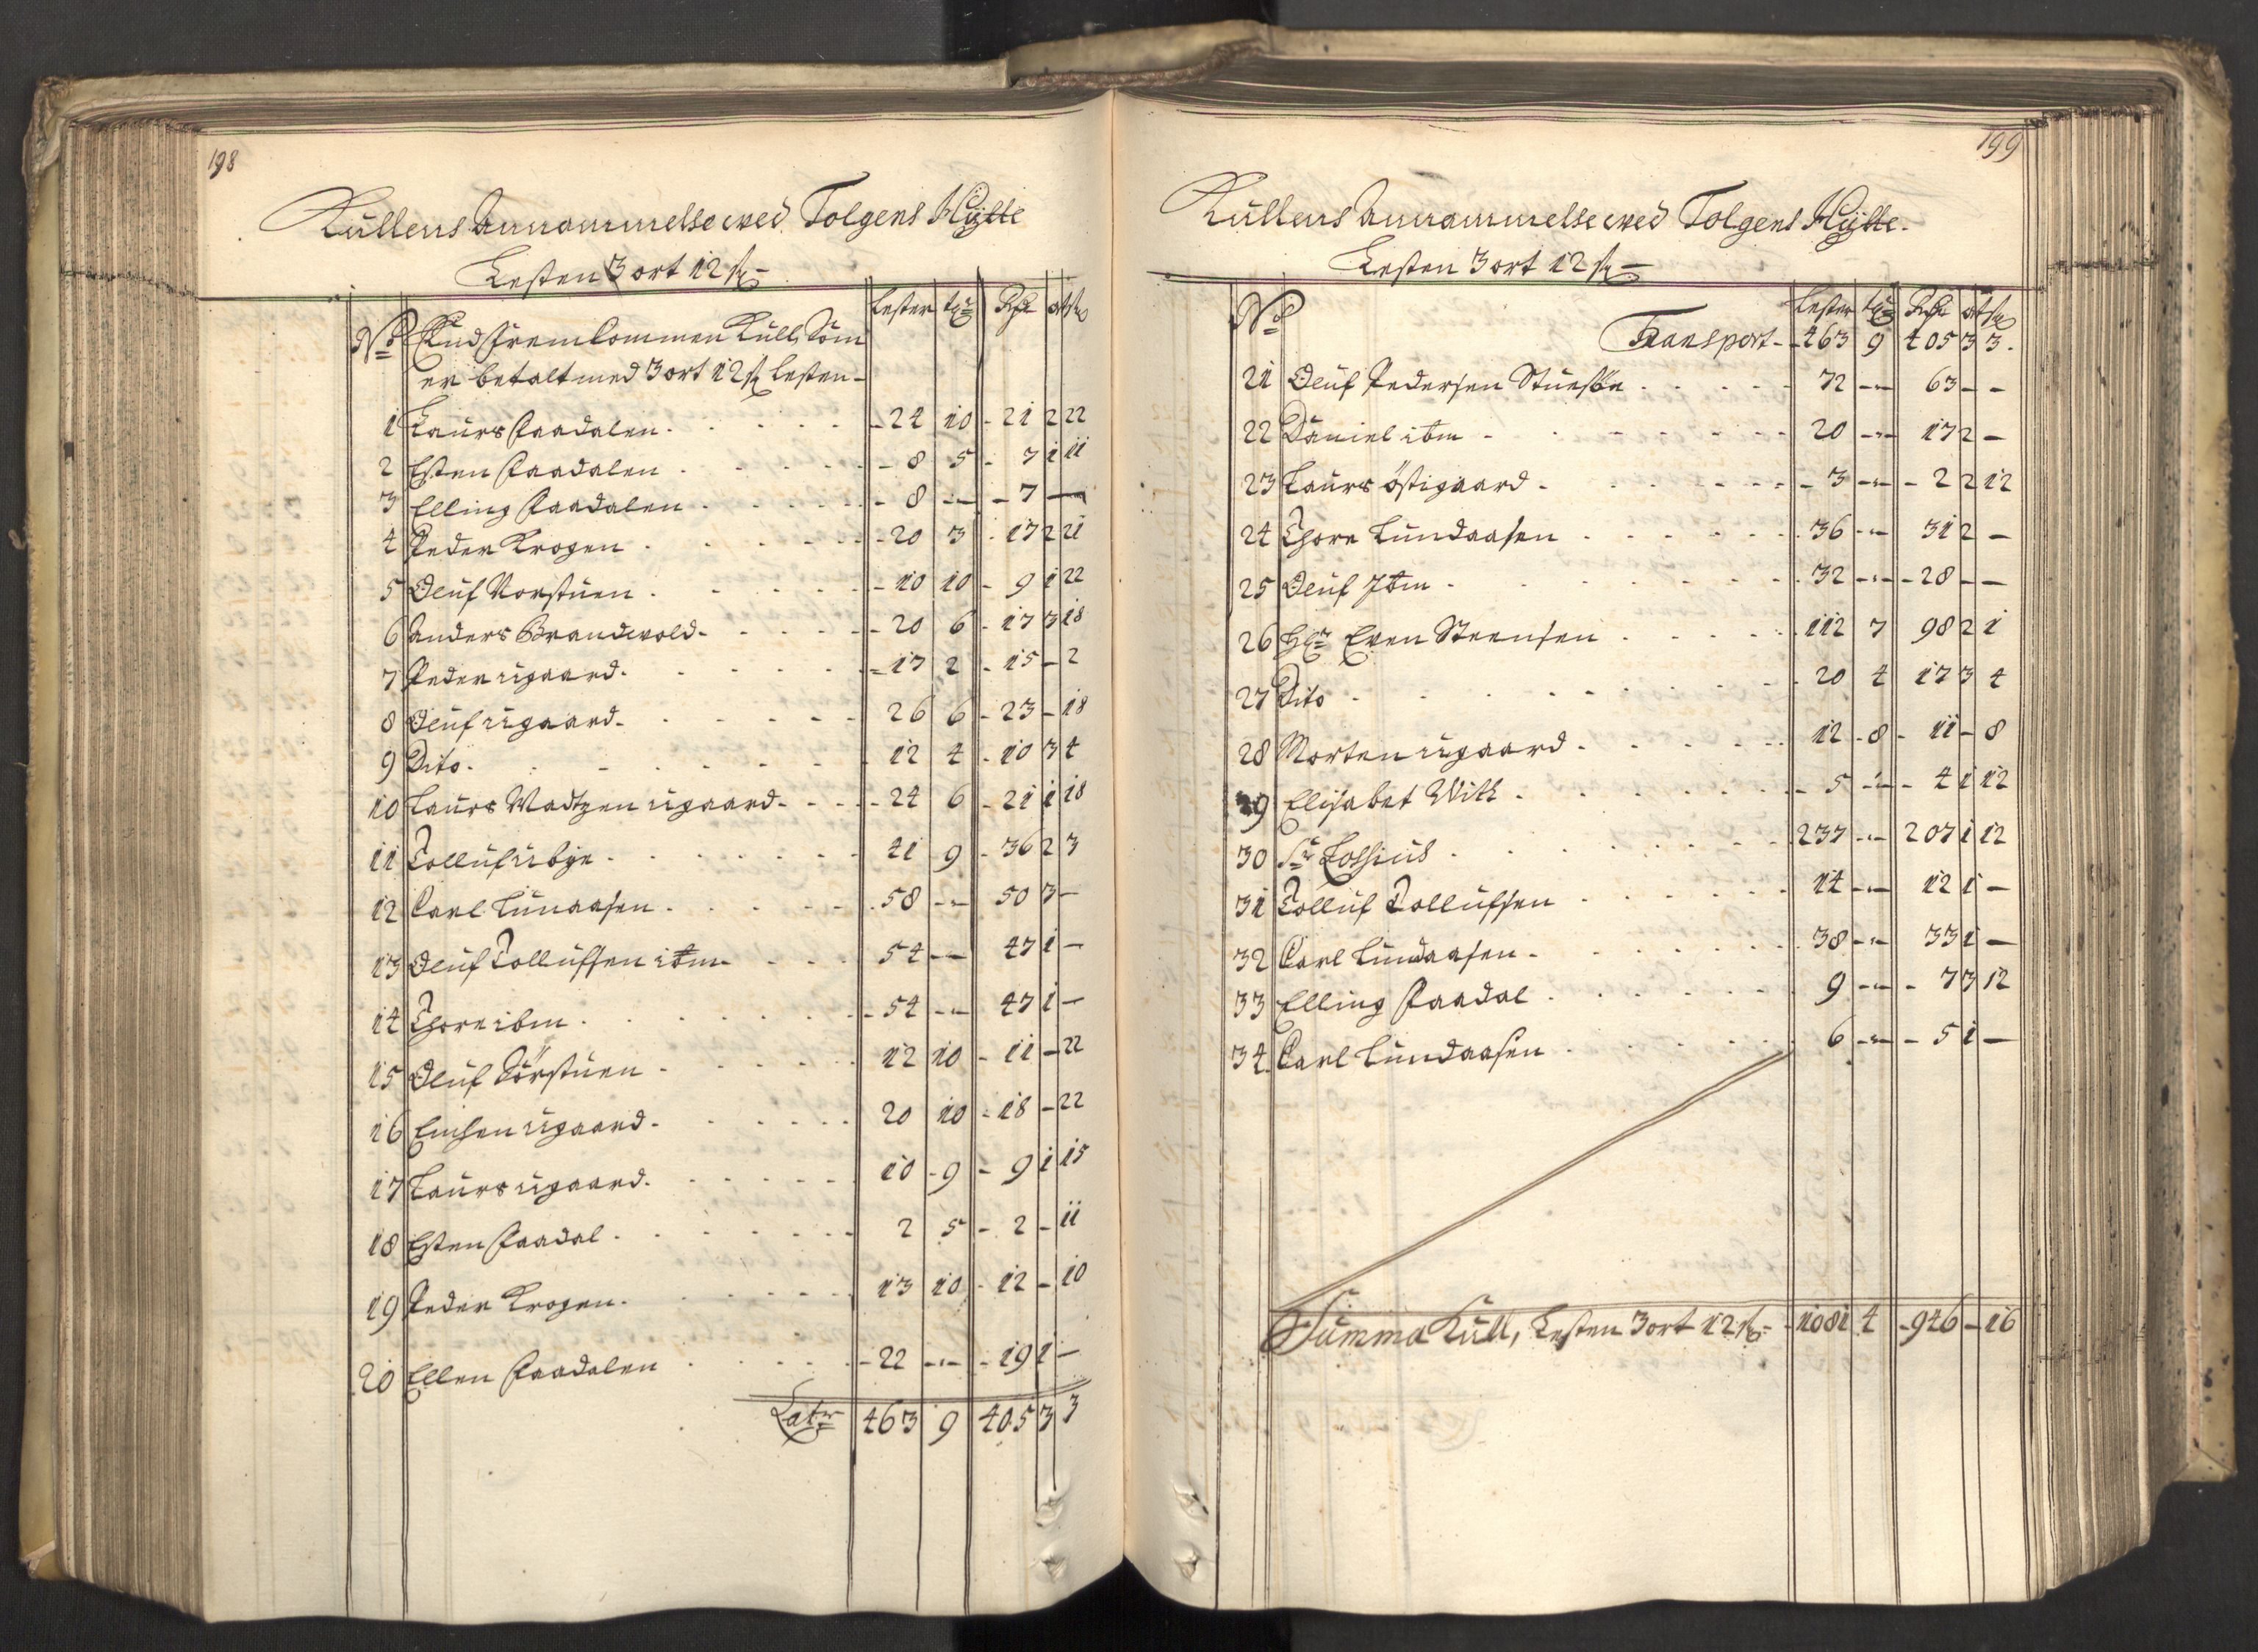 198
Kullens Annammelse wed Tolgens Hytte
Lesten 3 ort 12 sk
No Lester tr Rdr ort sk
End Fremkommen Kull, Som
er betalt med 3 ort 12 sk lesten
1 Laurs Paadalen - 24 10 - 21 2 22
2 Esten Paadalen - 8 5 - 7 1 11
3 Elling Paadalen - 8 - - 7 -
4 Peder Krogen - 20 3 - 17 2 21
5 Oluf Norstuen - 10 10 - 9 1 22
6 Anders Brandwold - 20 6 - 17 3 18
7 Peder Ugaard - 17 2 - 15 - 2
8 Oluf Ugaard - 26 6 - 23 - 18
9 Dito - 12 4 - 10 3 4
10 Laurs Madtzen Ugaard - 24 6 - 21 1 18
11 Tolluf Ubye - 41 9 - 36 2 3
12 Carl Lunaasen - 58 - 50 3 -
13 Oluf Tollufsen ibm - 54 - 47 1 -
14 Thore ibm - 54 - 47 1 -
15 Oluf Sörstuen - 12 10 - 11 - 22
16 Ugaard - 20 10 - 18 - 22
17 Laurs Ugaard - 10 - 9 - 9 1 15
18 Esten Paadal - 2 5 - 2 - 11
19 Peder Krogen - 13 10 - 12 - 10
20 Ellen Paadalen - 22 - - 19 1 -
Latr 463 9 405 3 3
199
Kullens Annammelse wed Tolgens Hytte.
Lesten 3 ort 12 sk
No Lester tr Rdr ort sk
Transport - 463 9 405 3 3
21 Oluf Pedersen Stuesöe - 72 - 63 - -
22 Daniel ibm - 20 - 17 2 -
23 Laurs Östigaard - 3 - - 2 2 12
24 Thore Lundaasen - 36 - 31 2 -
25 Oluf Ibm - 32 - - 28 - -
26 Hr Even Steensen - 112 7 98 2 1
27 Dito - 20 4 17 3 4
28 Morten Ugaard - 12 - 8 - 11 - 8
29 Elisabet With - 5 - - 4 1 12
30 Sr Lossius - 237 - 207 1 12
31 Tolluf Tollufsen - 14 - 12 1 -
32 Carl Lundaasen - 38 - 33 1 -
33 Elling Paadal - 9 - - 7 3 12
34 Carl Lundaasen - 6 - - 5 1 -
Summa Kull, Lesten 3 ort 12 sk - 1081 4 - 946 - 16